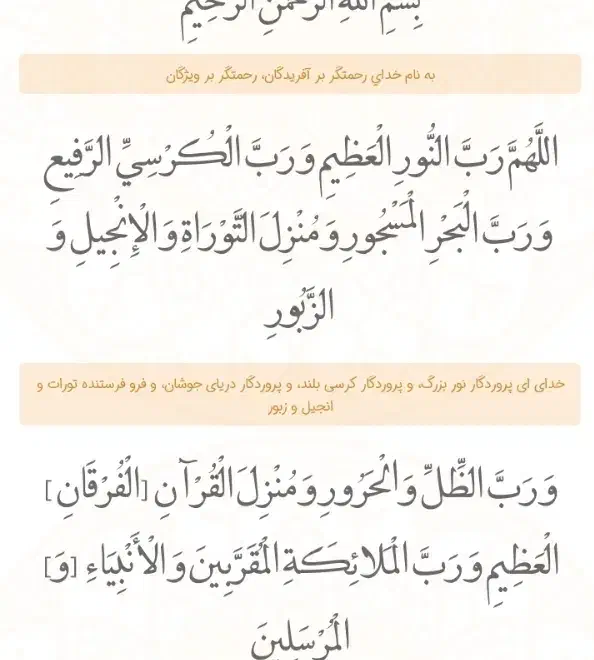 بِسْمِ اللَّهِ الرَّحْمَنِ الرَّحِيمِ
به نام خداي رحمتگر بر آفریدگان، رحمتگر بر ویژگان
اللَّهُمَّ رَبَّ النُّورِ الْعَظِيمِ وَ رَبَّ الْكُرْسِيِّ الرَّفِيعِ
وَ رَبَّ الْبَحْرِ الْمَسْجُورِ وَ مُنْزِلَ التَّوْرَاةِ وَ الْإِنْجِيلِ وَ
الزَّبُورِ
خدای ای پروردگار نور بزرگ، و پروردگار کرسی بلند، و پروردگار دریای جوشان، و فرو فرستنده تورات و
انجیل و زبور
وَ رَبَّ الظِّلِّ وَ الْحَرُورِ وَ مُنْزِلَ الْقُرْآنِ [الْفُرْقَانِ‏]
الْعَظِيمِ وَ رَبَّ الْمَلائِكَةِ الْمُقَرَّبِينَ وَ الْأَنْبِيَاءِ [وَ]
الْمُرْسَلِينَ